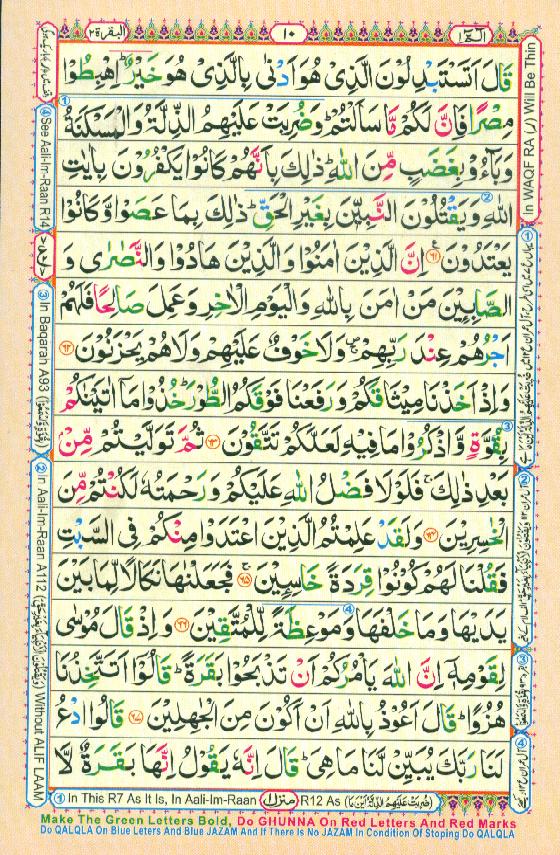 البقرة ٢
١٠
الٓمّٓ ١
قَالَ اَتَسْتَبْدِلُوْنَ الَّذِیْ هُوَ اَدْنٰی بِالَّذِیْ هُوَ خَیْرٌ ؕ اِهْبِطُوْا
مِصْرًا فَاِنَّ لَكُمْ مَّا سَاَلْتُمْ ؕ وَضُرِبَتْ عَلَیْهِمُ الذِّلَّةُ وَالْمَسْكَنَةُ
وَبَآءُوْ بِغَضَبٍ مِّنَ اللّٰهِ ؕ ذٰلِكَ بِاَنَّهُمْ كَانُوْا یَكْفُرُوْنَ بِاٰیٰتِ
اللّٰهِ وَیَقْتُلُوْنَ النَّبِیّٖنَ بِغَیْرِ الْحَقِّ ؕ ذٰلِكَ بِمَا عَصَوْا وَّكَانُوْا
یَعْتَدُوْنَ ﴿۶۱﴾ اِنَّ الَّذِیْنَ اٰمَنُوْا وَالَّذِیْنَ هَادُوْا وَالنَّصٰرٰی وَ
الصّٰبِـِٕیْنَ مَنْ اٰمَنَ بِاللّٰهِ وَالْیَوْمِ الْاٰخِرِ وَعَمِلَ صَالِحًا فَلَهُمْ
اَجْرُهُمْ عِنْدَ رَبِّهِمْ ۪ۚ وَلَا خَوْفٌ عَلَیْهِمْ وَلَا هُمْ یَحْزَنُوْنَ ﴿۶۲﴾
وَاِذْ اَخَذْنَا مِیْثَاقَكُمْ وَرَفَعْنَا فَوْقَكُمُ الطُّوْرَ ؕ خُذُوْا مَاۤ اٰتَیْنٰكُمْ
بِقُوَّةٍ وَّاذْكُرُوْا مَا فِیْهِ لَعَلَّكُمْ تَتَّقُوْنَ ﴿۶۳﴾ ثُمَّ تَوَلَّیْتُمْ مِّنْۢ
بَعْدِ ذٰلِكَ ۚ فَلَوْلَا فَضْلُ اللّٰهِ عَلَیْكُمْ وَرَحْمَتُهٗ لَكُنْتُمْ مِّنَ
الْخٰسِرِیْنَ ﴿۶۴﴾ وَلَقَدْ عَلِمْتُمُ الَّذِیْنَ اعْتَدَوْا مِنْكُمْ فِی السَّبْتِ
فَقُلْنَا لَهُمْ كُوْنُوْا قِرَدَةً خَاسِـِٕیْنَ ﴿۶۵﴾ ۚ فَجَعَلْنٰهَا نَكَالًا لِّمَا بَیْنَ
یَدَیْهَا وَمَا خَلْفَهَا وَمَوْعِظَةً لِّلْمُتَّقِیْنَ ﴿۶۶﴾ وَاِذْ قَالَ مُوْسٰی
لِقَوْمِهٖۤ اِنَّ اللّٰهَ یَاْمُرُكُمْ اَنْ تَذْبَحُوْا بَقَرَةً ؕ قَالُوْۤا اَتَتَّخِذُنَا
هُزُوًا ؕ قَالَ اَعُوْذُ بِاللّٰهِ اَنْ اَكُوْنَ مِنَ الْجٰهِلِیْنَ ﴿۶۷﴾ قَالُوا ادْعُ
لَنَا رَبَّكَ یُبَیِّنْ لَّنَا مَا هِیَ ؕ قَالَ اِنَّهٗ یَقُوْلُ اِنَّهَا بَقَرَةٌ لَّا
In WAQF RA (ر) Will Be Thin
④ See Aali-Im-Raan R14
③ In Baqarah A93
② In Aali-Im-Raan A112 Without ALIF LAAM
① In This R7 As It Is, In Aali-Im-Raan منزل ١ R12 As
Make The Green Letters Bold, Do GHUNNA On Red Letters And Red Marks
Do QALQLA On Blue Leters And Blue JAZAM And If There Is No JAZAM In Condition Of Stoping Do QALQLA